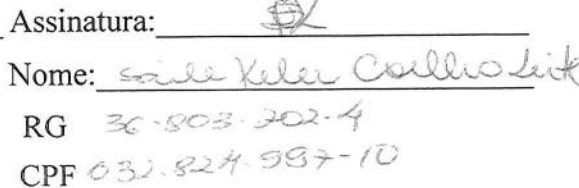 Assinatura:
Nome: Saile Keler Coelho Leit
RG 36.803.202-4
CPF 032.824.997-10